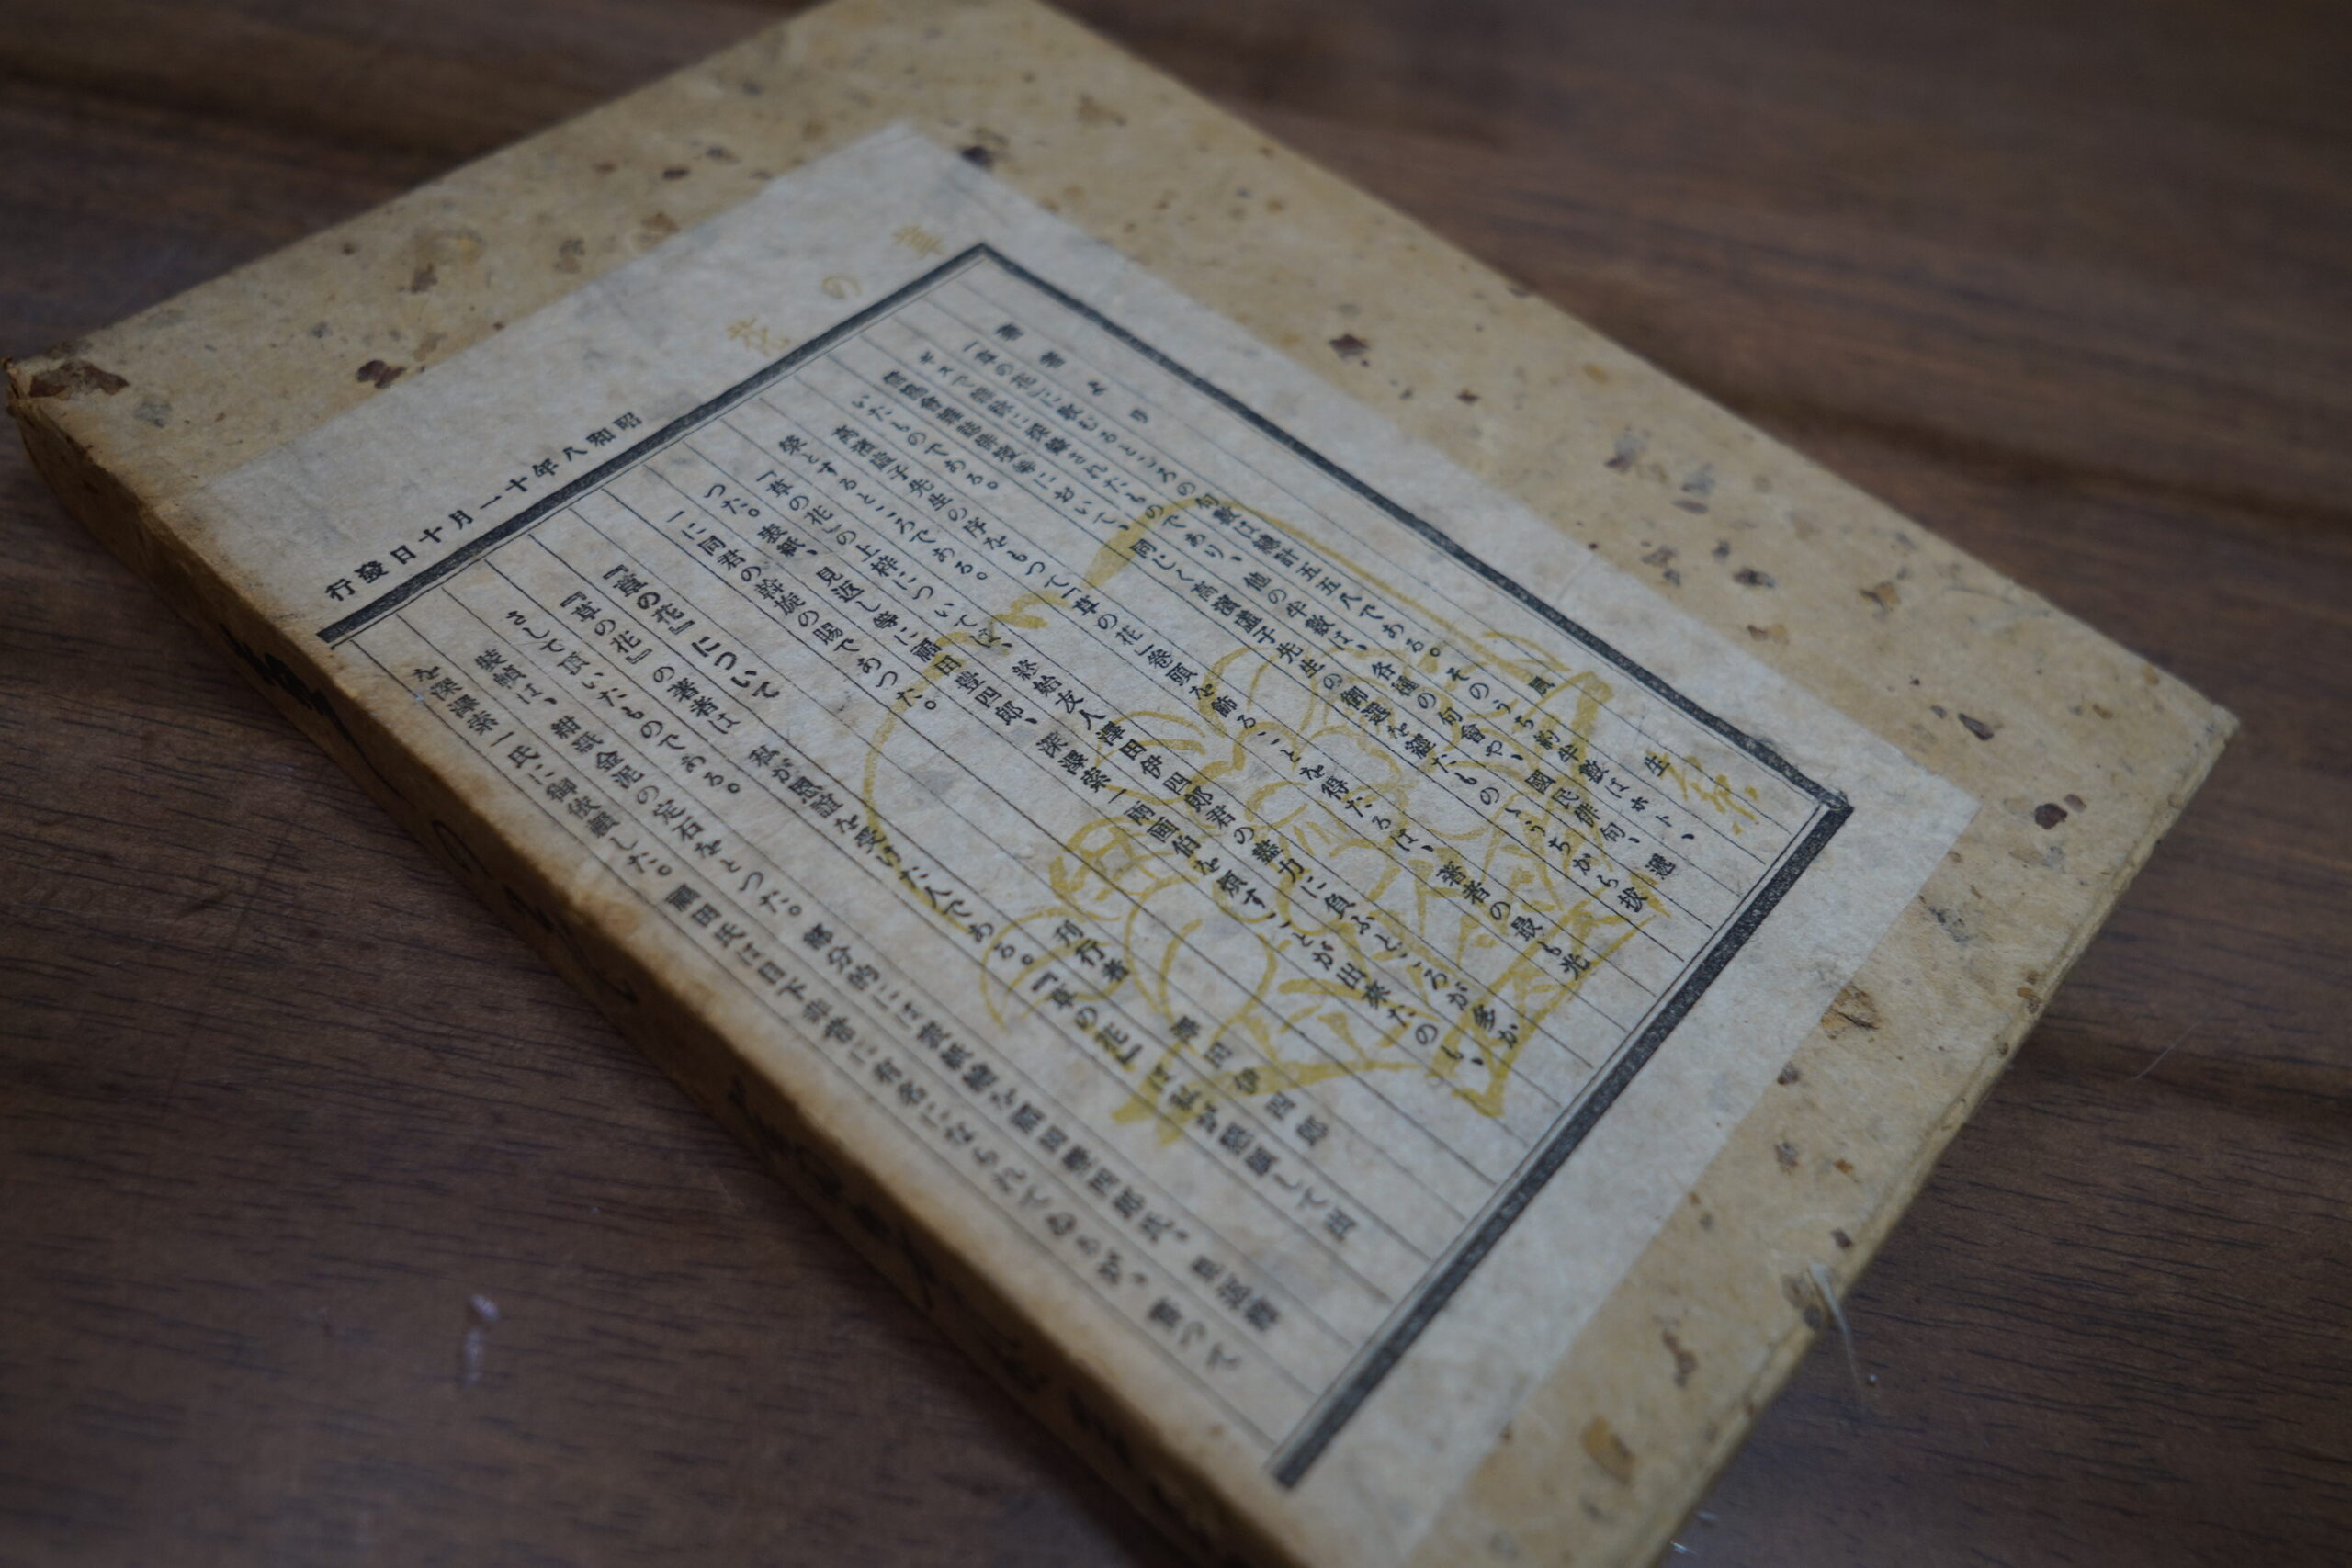 草の花
著者より
『草の花』に收むるところの句數は總計五五八である。そのうち約半數はホトヽ
ギスで雜詠に採錄されたもので あり、他の半數は、各種の句會や、國民俳句、
て、同じく高濱虛子先生の御選を經たものゝうちから拔
いたものである。
高濱虛子先生の序をもつて『草の花』卷頭を飾ることを得たるは、著者の最も光
榮とするところである。
『草の花』の上梓については、終始友人澤田伊四郎君の盡力に負ふところが多か
つた。表紙、見返し等に福田豐四郎、深澤索一兩画伯を煩すことが出來たのも、
一に同君の幹旋の賜であつた。
『草の花』について
刊行者 澤田伊四郎
『草の花』の著者は 私が恩誼を受けた人である。『草の花』は私が懇願して出
さして頂いたものである。
裝幀は、紺紙金泥の定石をとつた。部分的には表紙繪を福田豐四郎氏、見返繪
を深澤索一氏に御依賴した。福田氏は目下非常に有名になられてゐるが、
昭和八年十一月十日發行